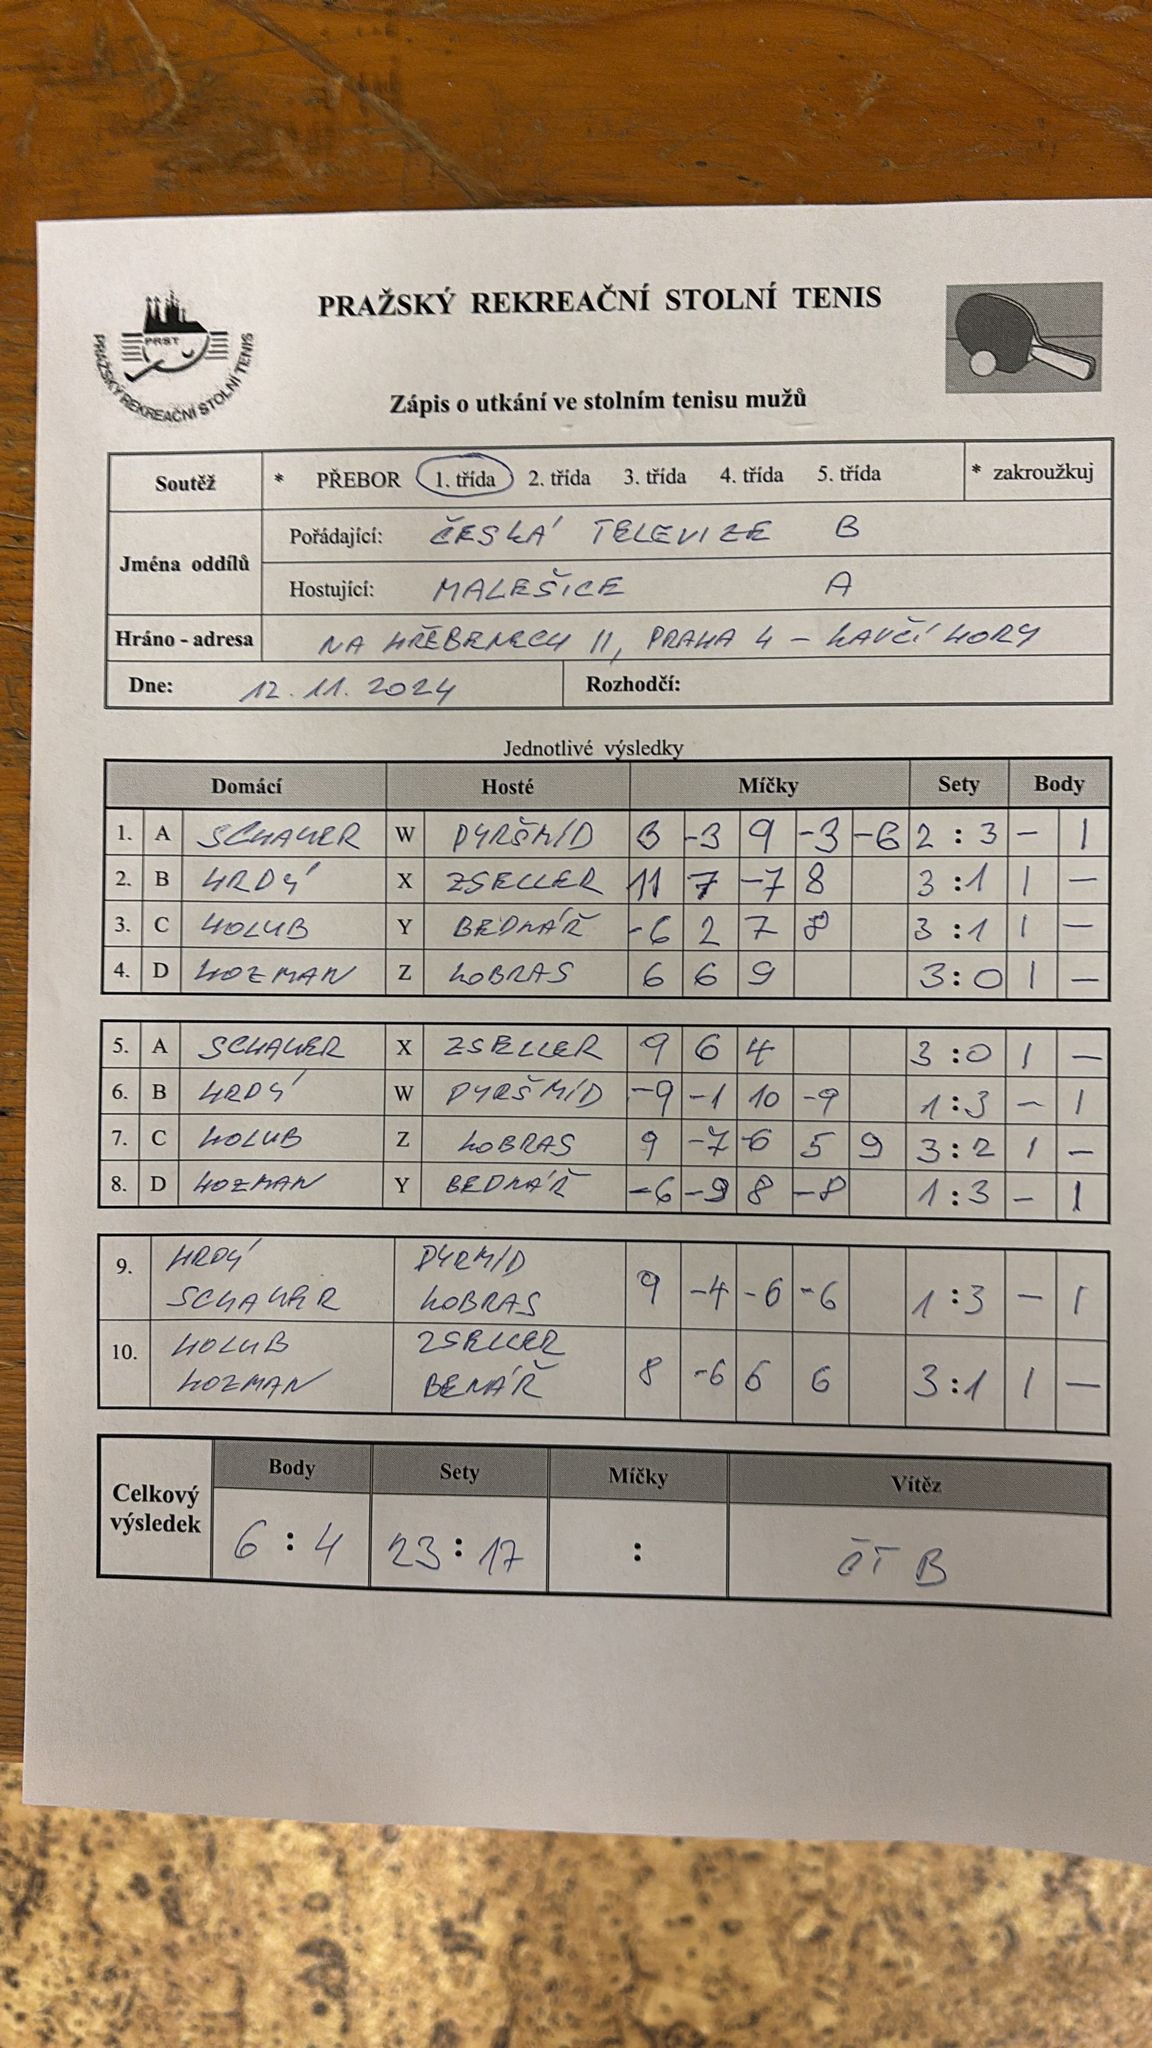 PRAŽSKÝ REKREAČNÍ STOLNÍ TENIS
PRST
PRAŽSKÝ REKREAČNÍ STOLNÍ TENIS
Zápis o utkání ve stolním tenisu mužů
Soutěž * PŘEBOR 1. třída 2. třída 3. třída 4. třída 5. třída * zakroužkuj
Jména oddílů
Pořádající: ČESKÁ TELEVIZE B
Hostující: MALEŠICE A
Hráno - adresa NA HŘEBENECH II, PRAHA 4 - KAVČÍ HORY
Dne: 12. 11. 2024 Rozhodčí:
Jednotlivé výsledky
Domácí Hosté Míčky Sety Body
1. A SCHAUER W PYRŠMÍD 8 -3 9 -3 -6 2 : 3 - 1
2. B HRDÝ X ZSELLER 11 7 -7 8 3 : 1 1 -
3. C HOLUB Y BEDNÁŘ -6 2 7 8 3 : 1 1 -
4. D KOZMAN Z KOBRAS 6 6 9 3 : 0 1 -
5. A SCHAUER X ZSELLER 9 6 4 3 : 0 1 -
6. B HRDÝ W PYRŠMÍD -9 -1 10 -9 1 : 3 - 1
7. C HOLUB Z KOBRAS 9 -7 -6 5 9 3 : 2 1 -
8. D KOZMAN Y BEDNÁŘ -6 -9 8 -8 1 : 3 - 1
9. HRDÝ PYRMÍD
SCHAUER KOBRAS 9 -4 -6 -6 1 : 3 - 1
10. HOLUB ZSELLER
KOZMAN BENÁŘ 8 -6 6 6 3 : 1 1 -
Celkový výsledek
Body Sety Míčky Vítěz
6 : 4 23 : 17 : ČT B